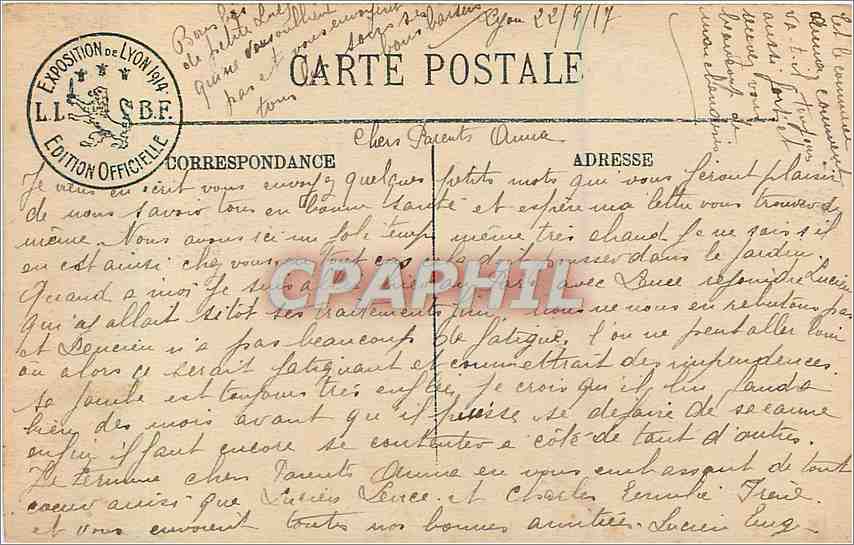 Lyon 22/9/17
Bons
de petite
qui ne vous oublient
pas et vous envoient
tous
bons baisers
Est le commerce
Anna comment
va t-il toujours
aussi fort et
vendez vous
beaucoup de
marchandises
EXPOSITION DE LYON 1914
L.L. B.F.
EDITION OFFICIELLE
CARTE POSTALE
Chers Parents Anna
CORRESPONDANCE
ADRESSE
Je viens en écrit vous envoyez quelques petits mots qui vous feront plaisir
de nous savoir tous en bonne santé et espère ma lettre vous trouver de
même. Nous avons ici un joli temps même très chaud. Je ne sais s'il
en est ainsi chez vous en tout cas doit pousser dans le jardin.
Quand a moi je suis avec Lence rejoindre Lucien
qui allait sitôt ses traitements fini. Nous ne nous en rebutons pas
et Lucien n'a pas beaucoup de fatigue, l'on ne peut aller loin
ou alors ce serait fatiguant et commettrait des imprudences.
Sa jambe est toujours très enflée, je crois qu'il lui faudra
bien des mois avant qu'il puisse se défaire de sa canne
enfin il faut encore se contenter a côté de tant d'autres.
Je termine chers Parents Anna en vous embrassant de tout
coeur ainsi que Lucien Lence et Charles
et vous envoient toutes nos bonnes amitiés. Lucien Eug
CPAPHIL